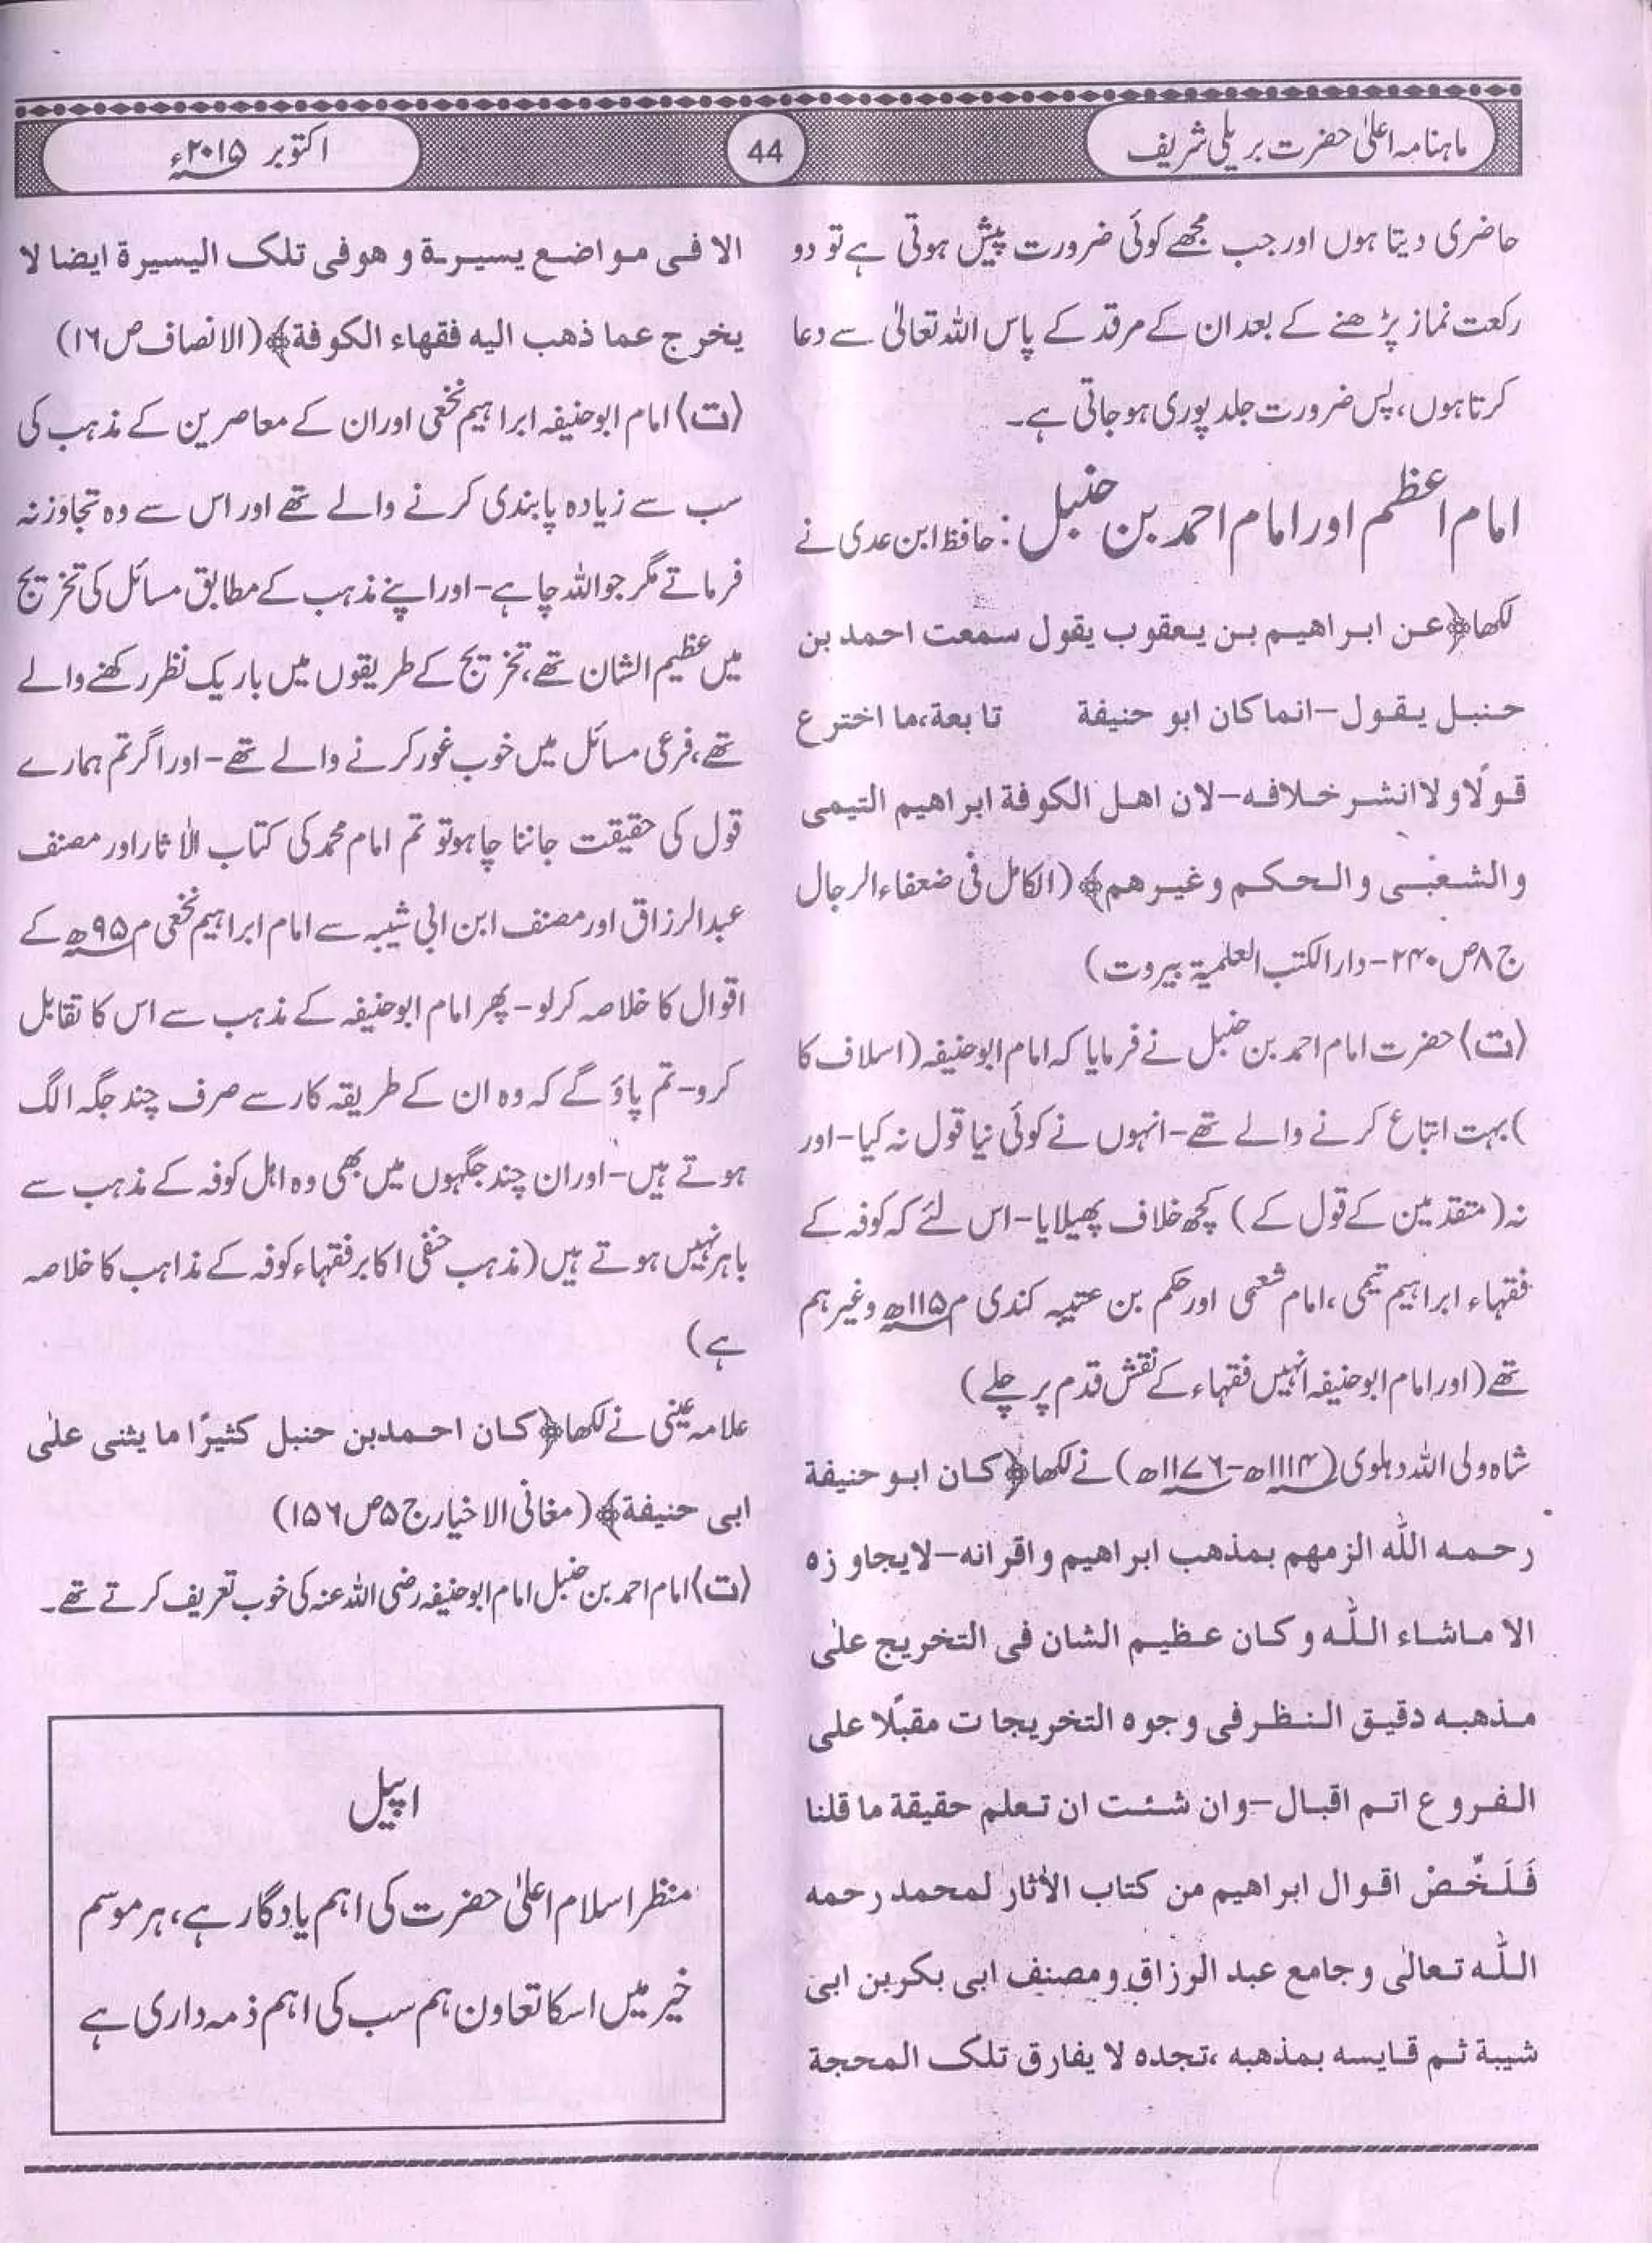 ماہنامہ اعلیٰ حضرت بریلی شریف
44
اکتوبر ۲۰۱۵ء
حاضری دیتا ہوں اور جب مجھے کوئی ضرورت پیش ہوتی ہے تو دو
رکعت نماز پڑھنے کے بعد ان کے مرقد کے پاس اللہ تعالیٰ سے دعا
کرتا ہوں، پس ضرورت جلد پوری ہو جاتی ہے۔
امام اعظم اور امام احمد بن حنبل: حافظ ابن عدی نے
لکھا﴿عن ابراهيم بن يعقوب يقول سمعت احمد بن
حنبل يقول–انما كان ابو حنيفة تابعة،ما اخترع
قولًا ولا انشر خلافه–لان اهل الكوفة ابراهيم التيمى
والشعبى والحكم وغيرهم﴾ (الکامل فی ضعفاء الرجال
ج۸ص۲۴۰–دار الکتب العلمیۃ بیروت)
(ت) حضرت امام احمد بن حنبل نے فرمایا کہ امام ابوحنیفہ (اسلاف کا
)بہت اتباع کرنے والے تھے–انہوں نے کوئی نیا قول نہ کیا–اور
نہ (متقدمین کے قول کے) کچھ خلاف پھیلایا–اس لئے کہ کوفہ کے
فقہاء ابراہیم تیمی، امام شعبی اور حکم بن عتیبہ کندی م۱۱۵ھ وغیرہم
تھے (اور امام ابوحنیفہ انہیں فقہاء کے نقش قدم پر چلے)
شاہ ولی اللہ دہلوی (۱۱۱۴ھ–۱۱۷۶ھ) نے لکھا﴿كان ابو حنيفة
رحمه الله الزمهم بمذهب ابراهيم واقرانه–لايجاوزه
الا ماشاء الله وكان عظيم الشان فى التخريج علٰى
مذهبه دقيق النظر فى وجوه التخريجات مقبلًا على
الفروع اتم اقبال–وان شئت ان تعلم حقيقة ما قلنا
فَلَخِّصْ اقوال ابراهيم من كتاب الآثار لمحمد رحمه
الله تعالٰى وجامع عبد الرزاق ومصنف ابى بكر بن ابى
شيبة ثم قايسه بمذهبه ،تجده لا يفارق تلک المحجة
الا فى مواضع يسيرة و هو فى تلک اليسيرة ايضا لا
يخرج عما ذهب اليه فقهاء الكوفة﴾(الانصاف ص۱۶)
(ت) امام ابوحنیفہ ابراہیم نخعی اور ان کے معاصرین کے مذہب کی
سب سے زیادہ پابندی کرنے والے تھے اور اس سے وہ تجاوز نہ
فرماتے مگر جو اللہ چاہے–اور اپنے مذہب کے مطابق مسائل کی تخریج
میں عظیم الشان تھے، تخریج کے طریقوں میں باریک نظر رکھنے والے
تھے، فرعی مسائل میں خوب غور کرنے والے تھے–اور اگر تم ہمارے
قول کی حقیقت جاننا چاہو تو تم امام محمد کی کتاب الآثار اور مصنف
عبدالرزاق اور مصنف ابن ابی شیبہ سے امام ابراہیم نخعی م۹۵ھ کے
اقوال کا خلاصہ کر لو–پھر امام ابوحنیفہ کے مذہب سے اس کا تقابل
کرو–تم پاؤ گے کہ وہ ان کے طریقہ کار سے صرف چند جگہ الگ
ہوتے ہیں–اور ان چند جگہوں میں بھی وہ اہل کوفہ کے مذہب سے
باہر نہیں ہوتے ہیں (مذہب حنفی اکابر فقہاء کوفہ کے مذاہب کا خلاصہ
ہے)
علامہ عینی نے لکھا﴿كان احمد بن حنبل كثيرًا ما يثنى علٰى
ابى حنيفة﴾(مغانی الاخیار ج۵ص۱۵۶)
(ت) امام احمد بن حنبل امام ابوحنیفہ رضی اللہ عنہ کی خوب تعریف کرتے تھے۔
اپیل
منظر اسلام اعلیٰ حضرت کی اہم یادگار ہے، ہر موسم
خیر میں اسکا تعاون ہم سب کی اہم ذمہ داری ہے